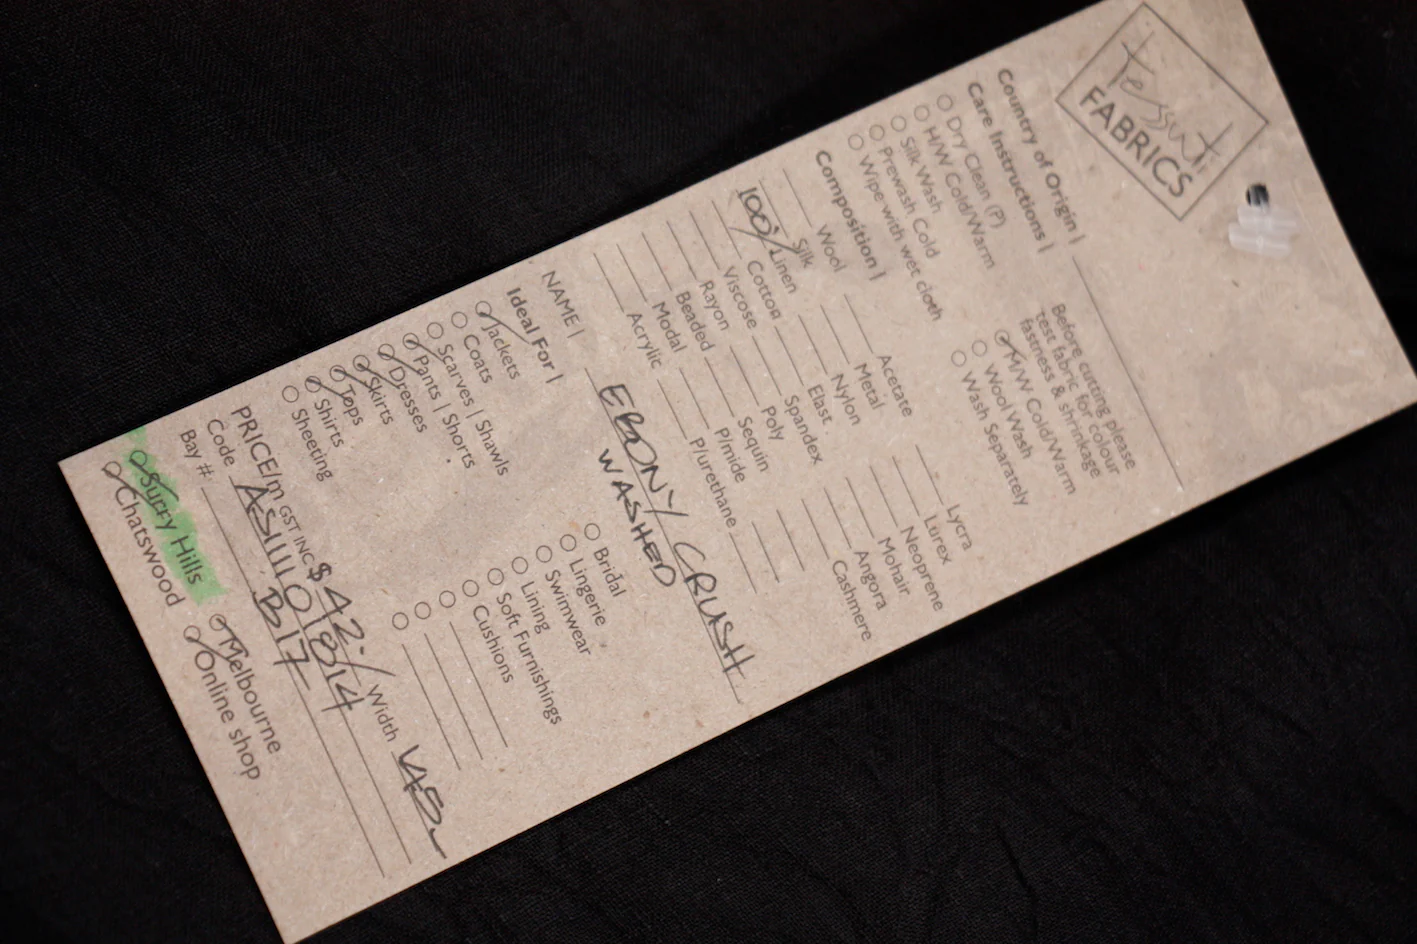 tessuti
FABRICS
Country of Origin |
Care Instructions |
Dry Clean (P)
H/W Cold/Warm
Silk Wash
Prewash Cold
Wipe with wet cloth
Before cutting please
test fabric for colour
fastness & shrinkage
M/W Cold/Warm
Wool Wash
Wash Separately
Composition |
Wool
Silk
100% Linen
Cotton
Viscose
Rayon
Beaded
Modal
Acrylic
Acetate
Metal
Nylon
Elast.
Spandex
Poly
Sequin
P/mide
P/urethane
Lycra
Lurex
Neoprene
Mohair
Angora
Cashmere
NAME | EBONY CRUSH
WASHED
Ideal For |
Jackets
Coats
Scarves | Shawls
Pants | Shorts
Dresses
Skirts
Tops
Shirts
Sheeting
Bridal
Lingerie
Swimwear
Lining
Soft Furnishings
Cushions
PRICE/m GST INC $ 42.- Width 145
Code
Bay # B17
Surry Hills
Chatswood
Melbourne
Online shop